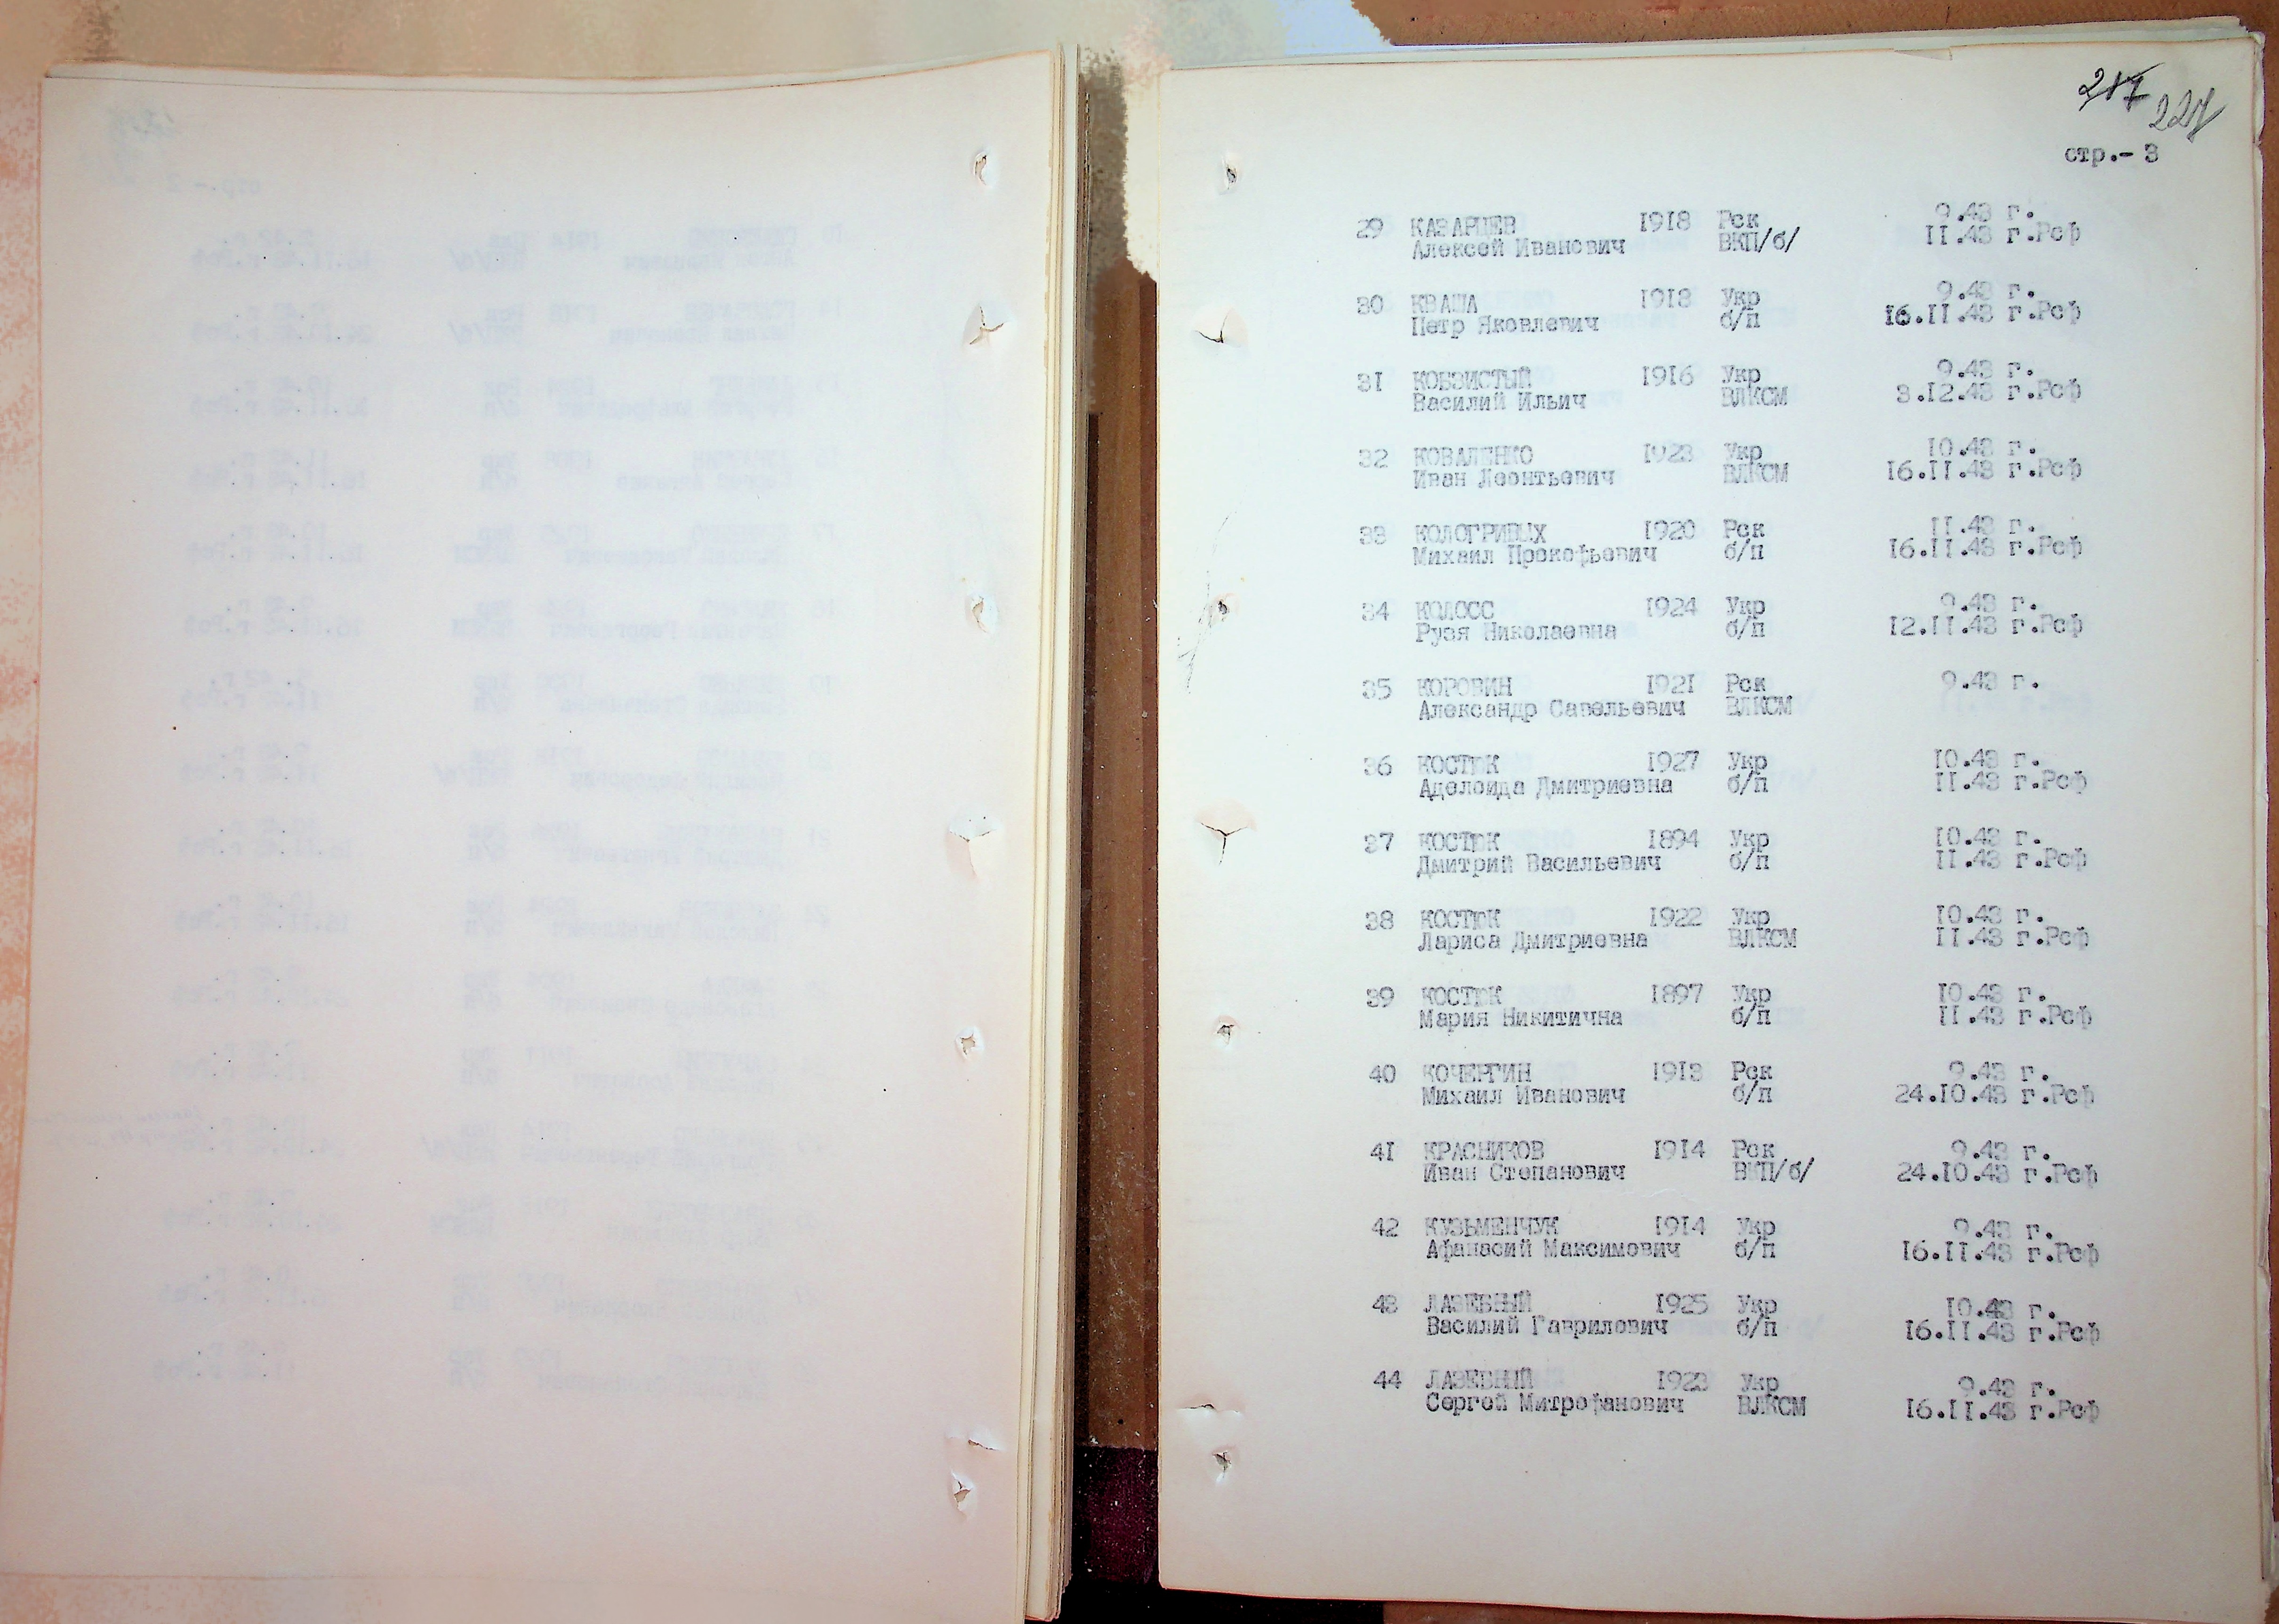 217
227
стр.- 3
29 КАЗАРЦЕВ 1918 Рск 9.43 г.
Алексей Иванович ВКП/б/ II.43 г.Рсф
30 КВАША 1918 Укр 9.43 г.
Петр Яковлевич б/п 16.II.43 г.Рсф
31 КОБЗИСТЫЙ 1916 Укр 9.43 г.
Василий Ильич ВЛКСМ 3.12.43 г.Рсф
32 КОВАЛЕНКО 1923 Укр 10.43 г.
Иван Леонтьевич ВЛКСМ 16.II.43 г.Рсф
33 КОЛОГРИВЫХ 1920 Рск II.43 г.
Михаил Прокофьевич б/п 16.II.43 г.Рсф
34 КОЛОСС 1924 Укр 9.43 г.
Рузя Николаевна б/п 12.II.43 г.Рсф
35 КОРОВИН 1921 Рск 9.43 г.
Александр Савельевич ВЛКСМ
36 КОСТЮК 1927 Укр 10.43 г.
Аделоида Дмитриевна б/п II.43 г.Рсф
37 КОСТЮК 1894 Укр 10.43 г.
Дмитрий Васильевич б/п II.43 г.Рсф
38 КОСТЮК 1922 Укр 10.43 г.
Лариса Дмитриевна ВЛКСМ II.43 г.Рсф
39 КОСТЮК 1897 Укр 10.43 г.
Мария Никитична б/п II.43 г.Рсф
40 КОЧЕРГИН 1913 Рск 9.43 г.
Михаил Иванович б/п 24.10.43 г.Рсф
41 КРАСНИКОВ 1914 Рск 9.43 г.
Иван Степанович ВКП/б/ 24.10.43 г.Рсф
42 КУЗЬМЕНЧУК 1914 Укр 9.43 г.
Афанасий Максимович б/п 16.II.43 г.Рсф
43 ЛАЗЕБНЫЙ 1925 Укр 10.43 г.
Василий Гаврилович б/п 16.II.43 г.Рсф
44 ЛАЗЕБНИЙ 1923 Укр 9.43 г.
Сергей Митрофанович ВЛКСМ 16.II.43 г.Рсф